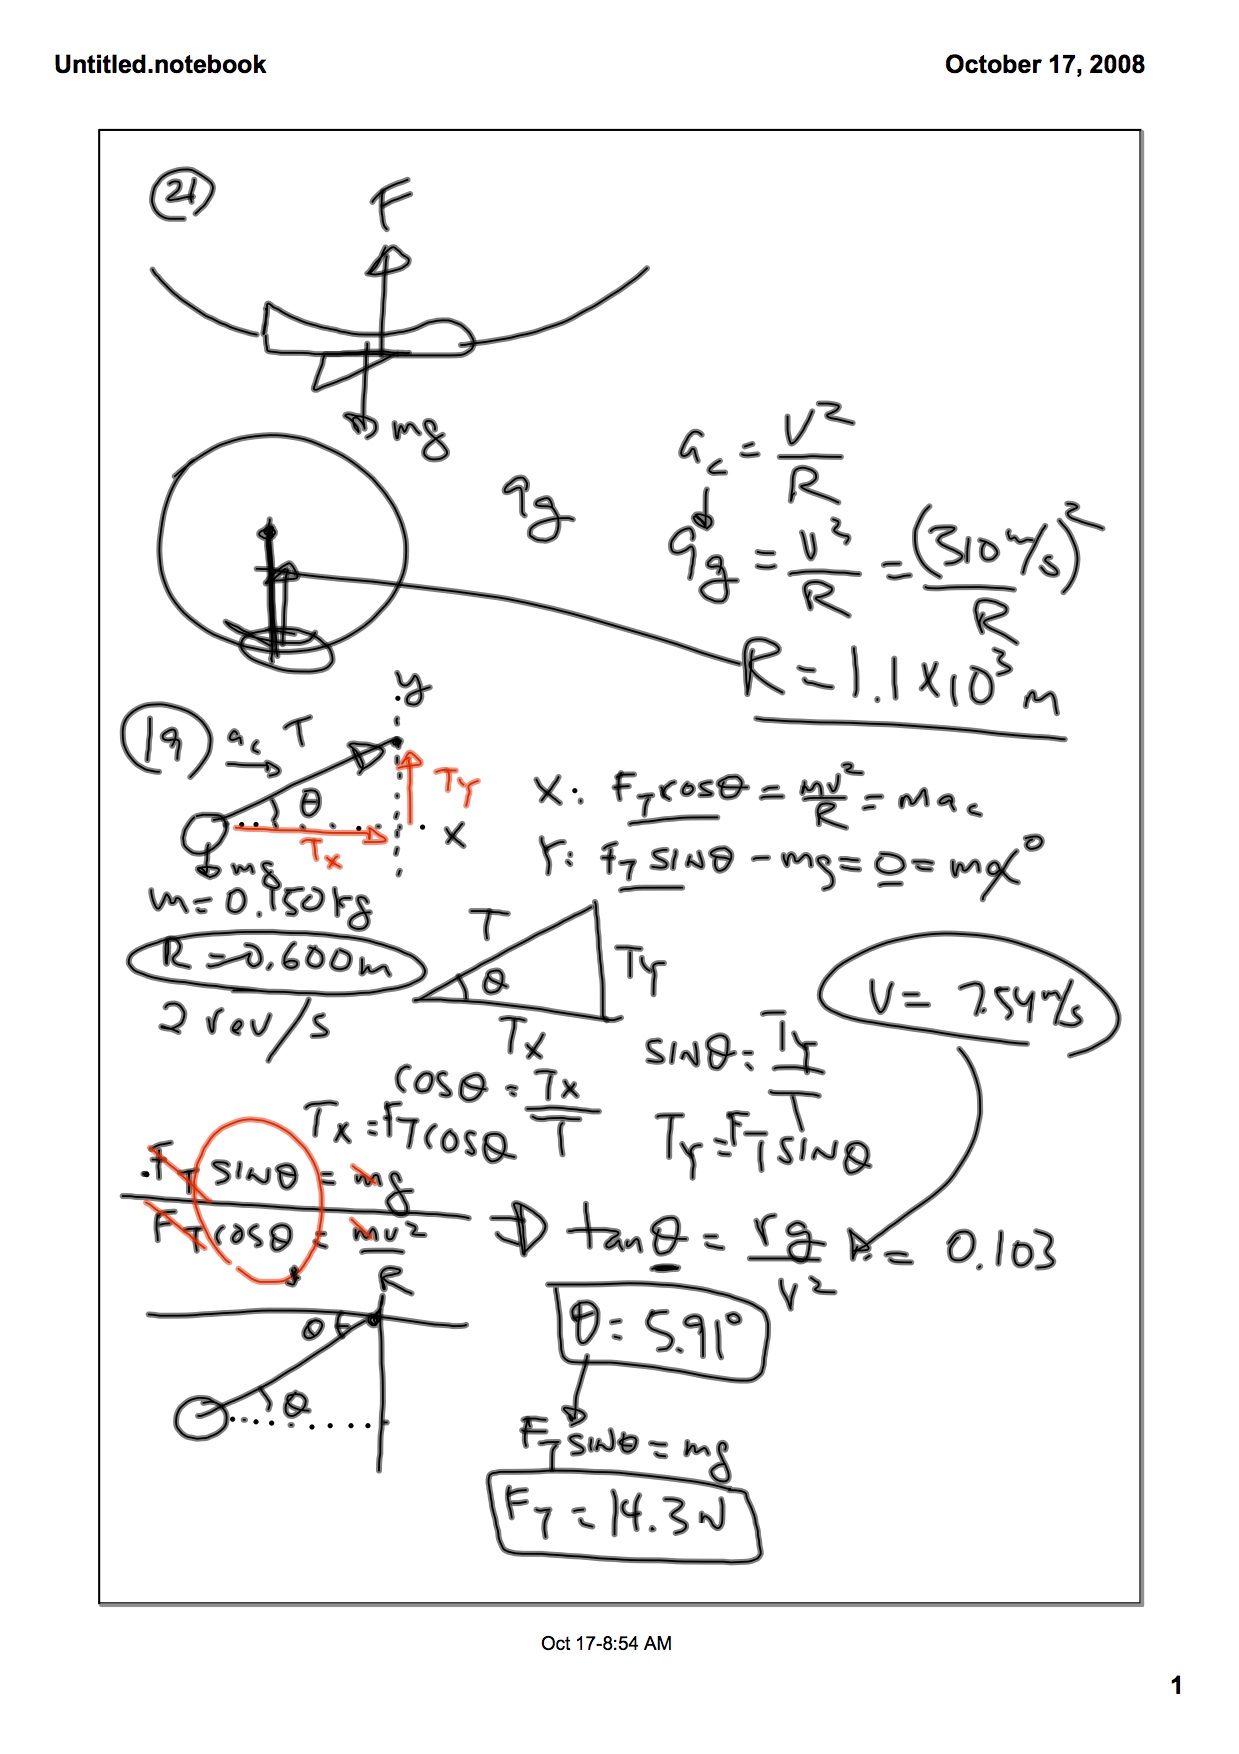 Untitled.notebook October 17, 2008
21
F
mg
a_c = V²/R
9g
9g = V²/R = (310 m/s)²/R
R = 1.1 x 10³ m
y
19 a_c T
Ty
θ
x
Tx
mg
X: F_T cosθ = mv²/R = mac
Y: F_T SINθ - mg = 0 = ma 0
m = 0.150 kg
R = 0.600 m
2 rev/s
T
θ
Ty
Tx
V = 7.54 m/s
SINθ = Ty/T
cosθ = Tx/T
Tx = F_T cosθ
Ty = F_T SINθ
F_T SINθ = mg
F_T cosθ = mv²/R
⇒ tanθ = rg/v² = 0.103
θ
θ
θ = 5.91°
F_T SINθ = mg
F_T = 14.3 N
Oct 17-8:54 AM
1